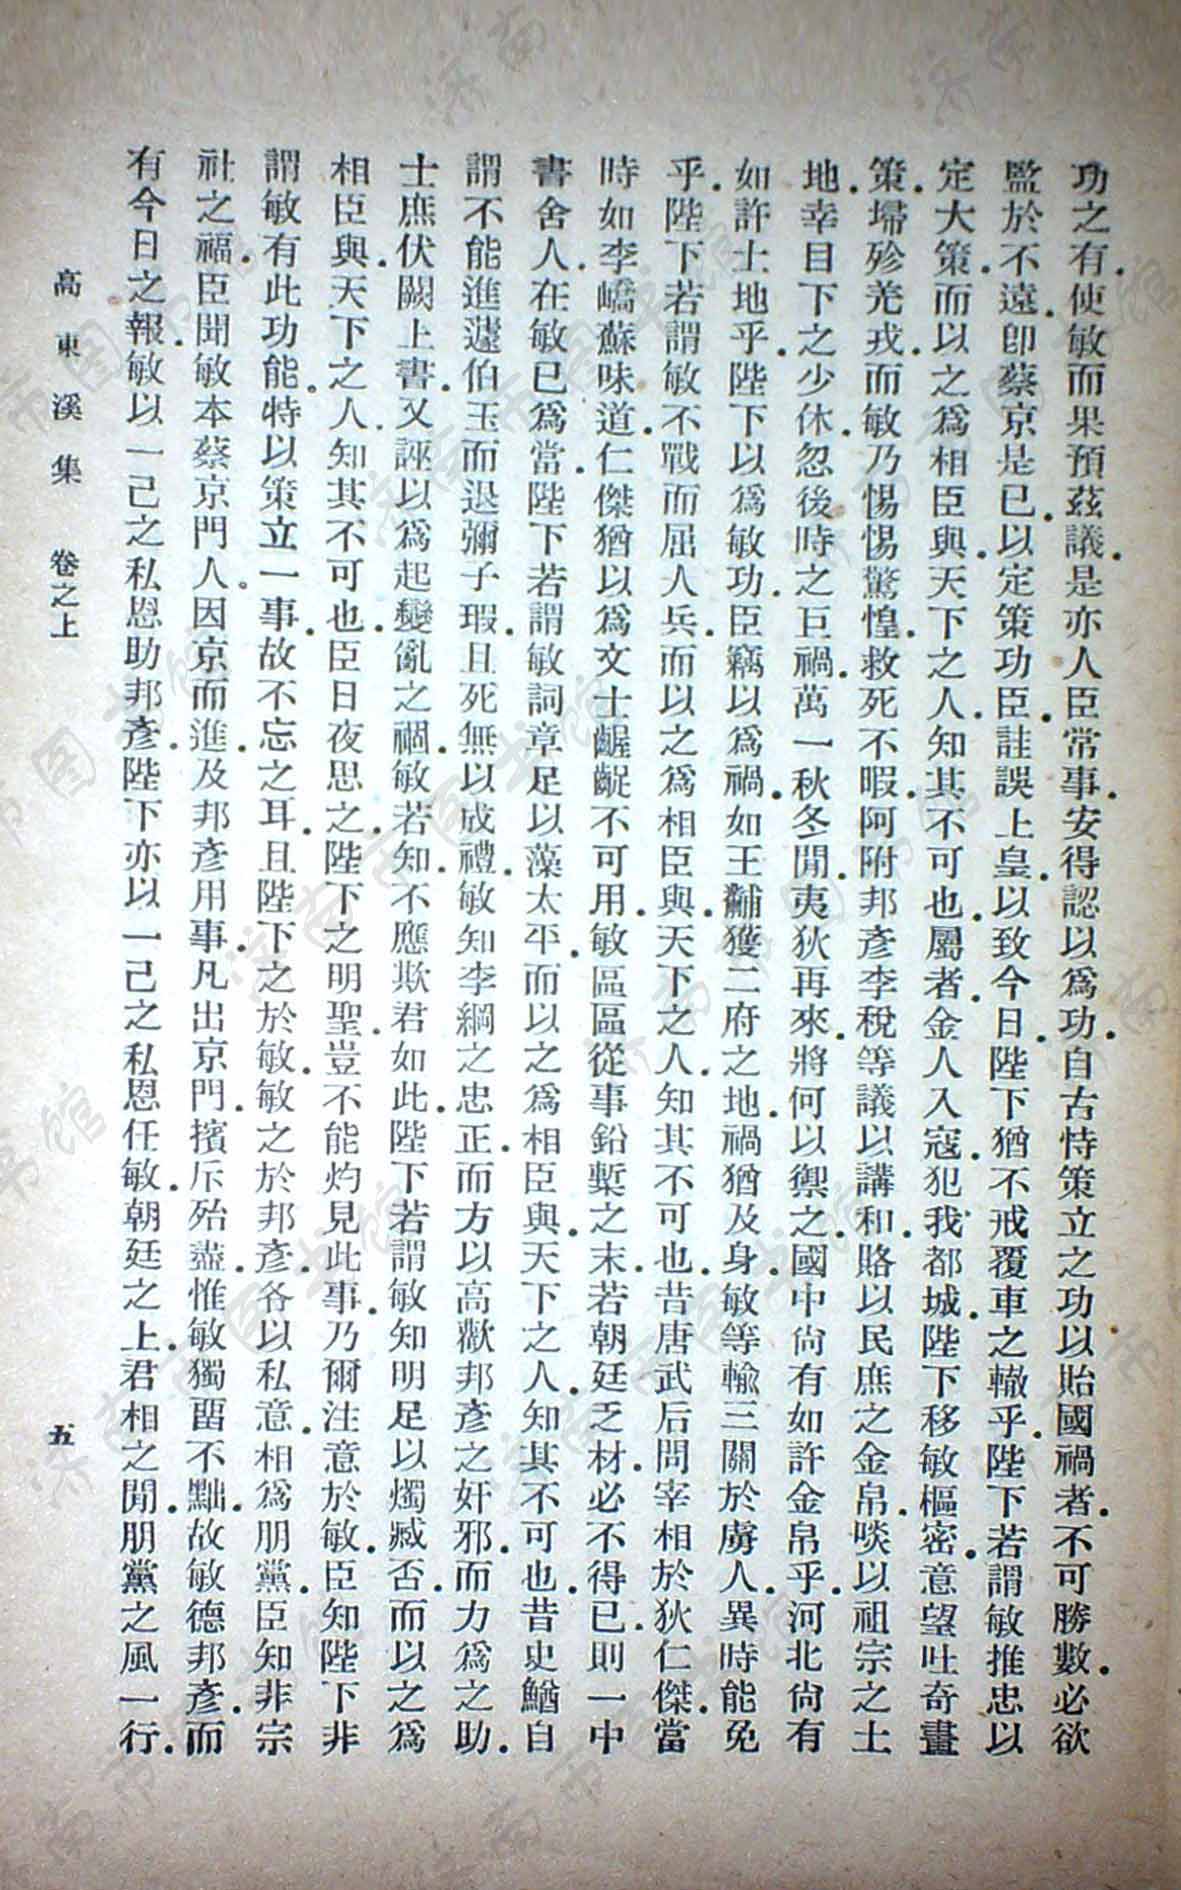 功之有.使敏而果預茲議.是亦人臣常事.安得認以爲功.自古恃策立之功以貽國禍者.不可勝數.必欲
監於不遠.卽蔡京是已.以定策功臣.註誤上皇.以致今日.陛下猶不戒覆車之轍乎.陛下若謂敏推忠以
定大策.而以之爲相臣與.天下之人.知其不可也.屬者.金人入寇.犯我都城.陛下移敏樞密.意望吐奇畫
策.埽殄羌戎.而敏乃惕惕驚惶.救死不暇.阿附邦彥李稅等議以講和.賂以民庶之金帛.啖以祖宗之土
地.幸目下之少休.忽後時之巨禍.萬一秋冬閒.夷狄再來.將何以禦之.國中尙有如許金帛乎.河北尙有
如許土地乎.陛下以爲敏功.臣竊以爲禍.如王黼獲二府之地.禍猶及身.敏等輸三關於虜人.異時能免
乎.陛下若謂敏不戰而屈人兵.而以之爲相臣與.天下之人.知其不可也.昔唐武后問宰相於狄仁傑.當
時如李嶠蘇味道.仁傑猶以爲文士齷齪不可用.敏區區從事鉛槧之末.若朝廷乏材.必不得已.則一中
書舍人.在敏已爲當.陛下若謂敏詞章足以藻太平.而以之爲相臣與.天下之人.知其不可也.昔史鰌自
謂不能進蘧伯玉而退彌子瑕.且死無以成禮.敏知李綱之忠正.而方以高歡邦彥之奸邪.而力爲之助.
士庶伏闕上書.又誣以爲起變亂之禍.敏若知.不應欺君如此.陛下若謂敏知明足以燭臧否.而以之爲
相臣與.天下之人.知其不可也.臣日夜思之.陛下之明聖.豈不能灼見此事.乃爾注意於敏.臣知陛下非
謂敏有此功能.特以策立一事.故不忘之耳.且陛下之於敏.敏之於邦彥.各以私意.相爲朋黨.臣知非宗
社之福.臣聞敏本蔡京門人。因京而進.及邦彥用事.凡出京門.擯斥殆盡.惟敏獨留不黜.故敏德邦彥.而
有今日之報.敏以一己之私恩助邦彥.陛下亦以一己之私恩任敏.朝廷之上.君相之閒.朋黨之風一行.
高東溪集 卷之上 五
济南市图书馆